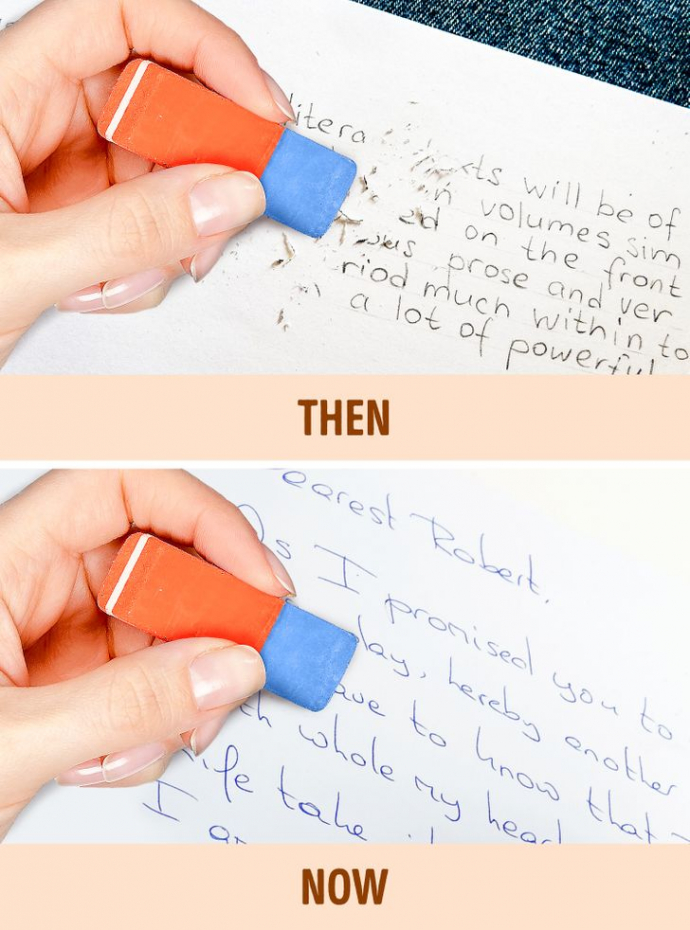 litera
xts will be of
n volumes sim
ed on the front
ous prose and ver
riod much within to
a lot of powerful
THEN
earest Robert,
As I promised you to
day, hereby another
ave to know that
th whole my heart
life take
I a
NOW